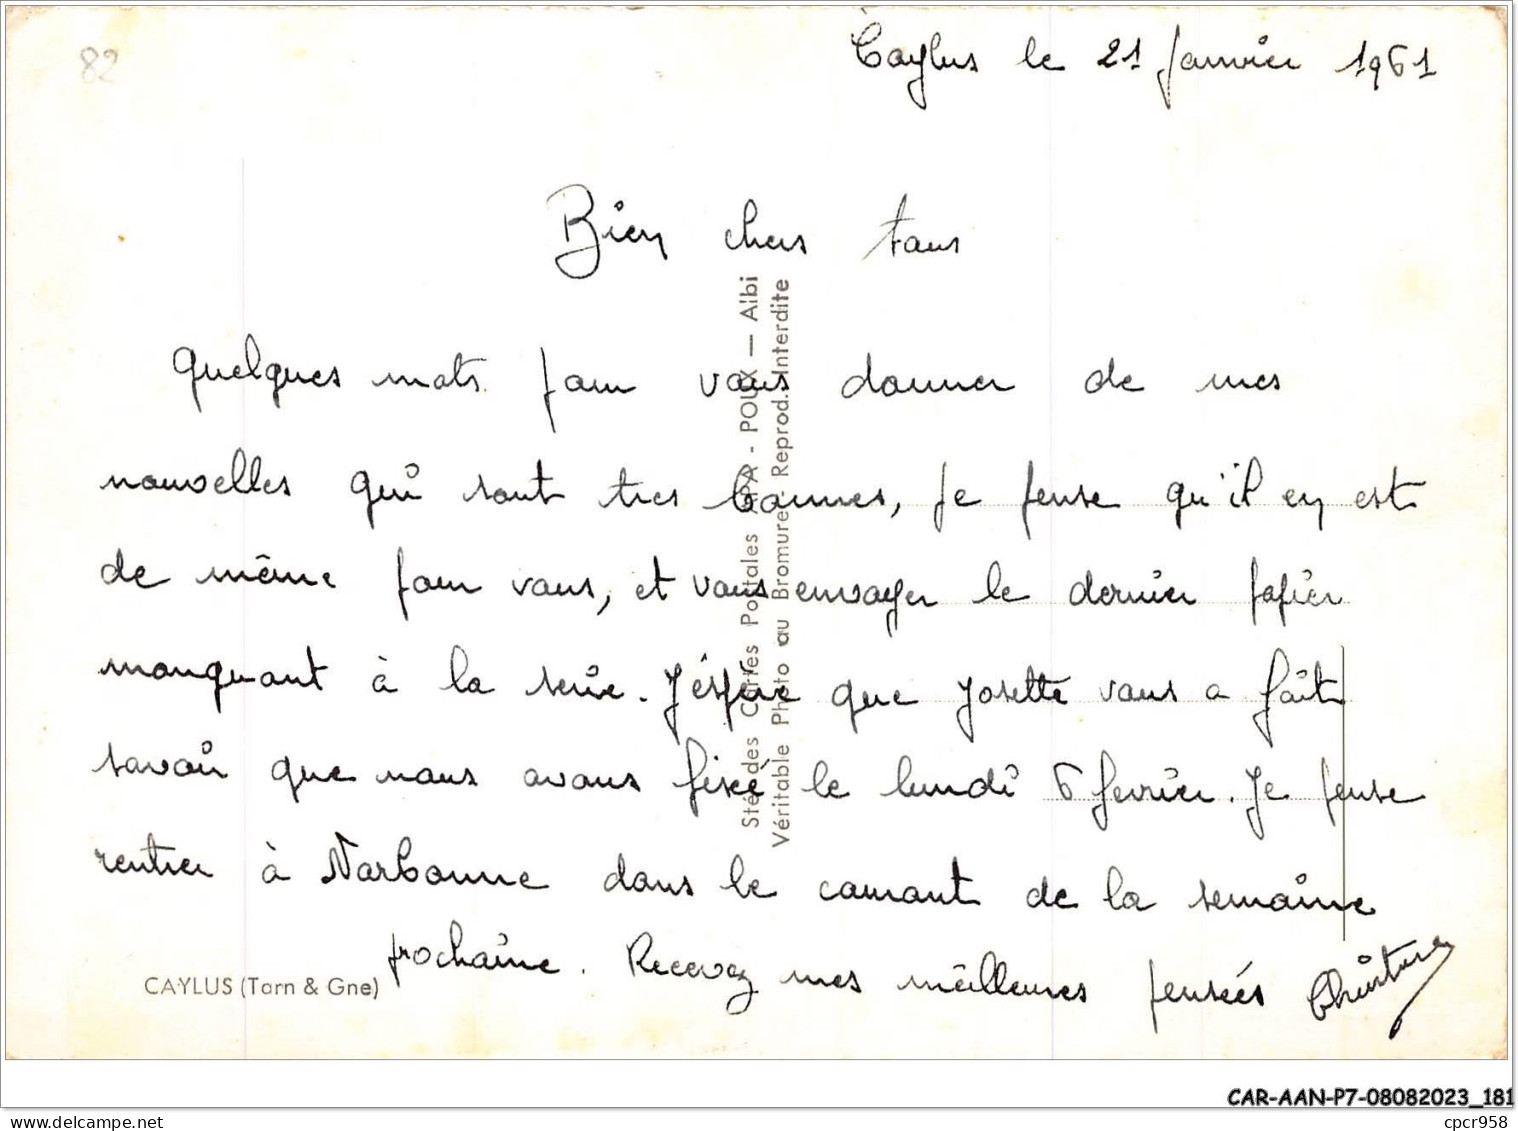 82
Caylus le 21 Janvier 1961
Bien chers tous
Quelques mots pour vous donner de mes
nouvelles qui sont tres bonnes, je pense qu'il en est
de même pour vous, et vous envoyer le dernier papier
manquant à la serie. J'éspère que Josette vous a fait
savoir que nous avons fixé le lundi 6 fevrier. Je pense
rentrer à Narbonne dans le courant de la semaine
prochaine. Recevez mes meilleures pensées Christian
CAYLUS (Tarn & Gne)
Sté des Cartes Postales APA - POUX — Albi
Véritable Photo au Bromure Reprod. Interdite
CAR-AAN-P7-08082023_181
cpcr958